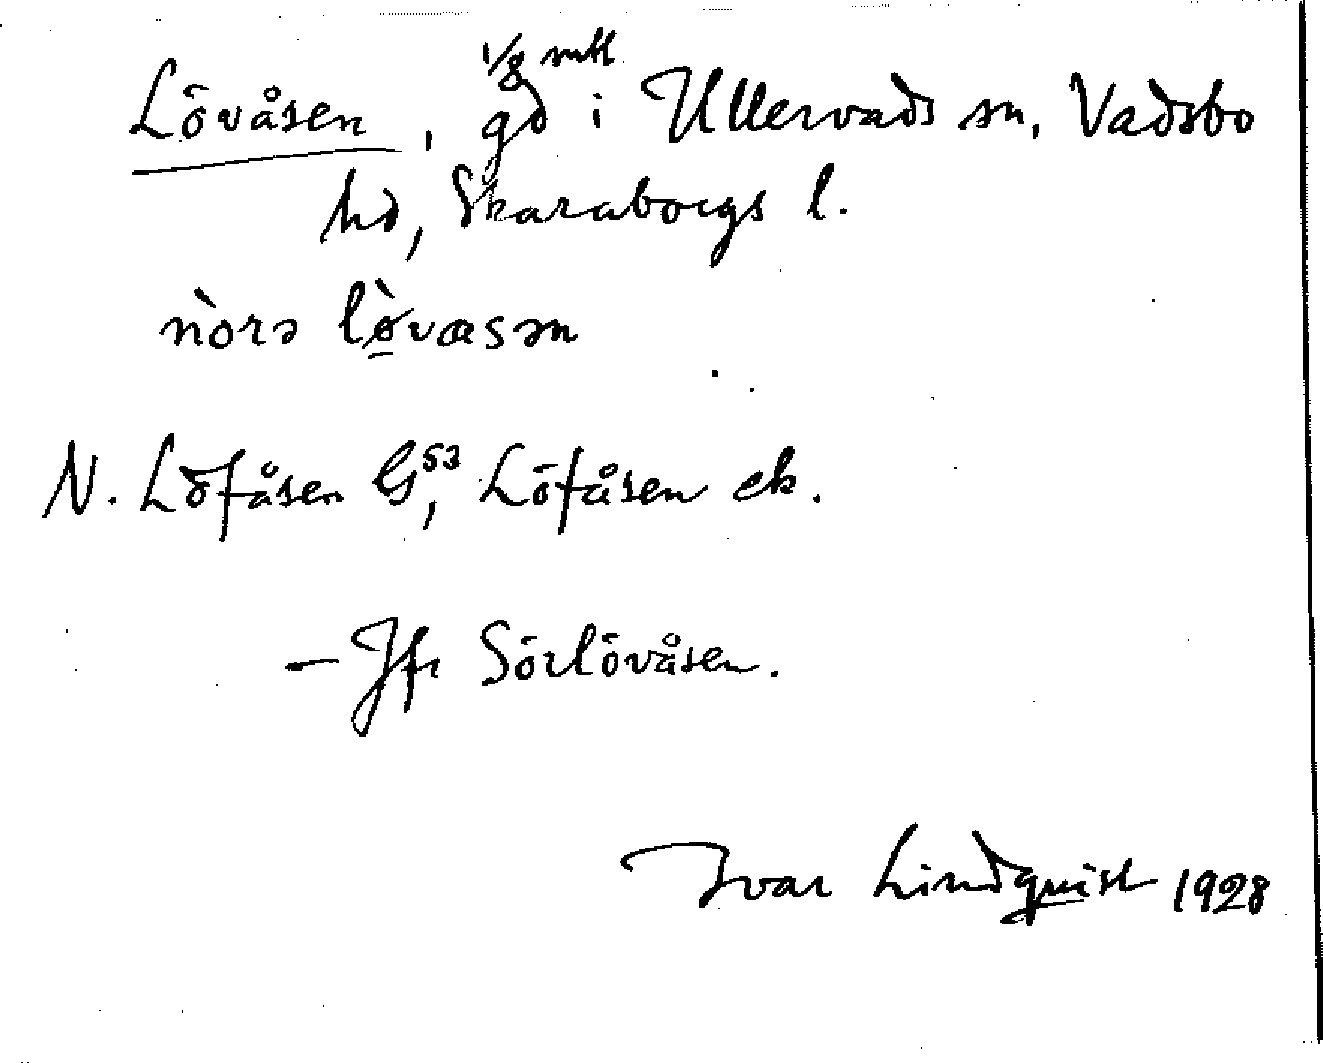 1/8 mtl
Lövåsen, gd i Ullervads sn, Vadsbo
hd, Skaraborgs l.
nòrə lø̀vasən
N. Löfåsen G53, Löfåsen ek.
– Jfr Sörlövåsen.
Ivar Lindquist 1928